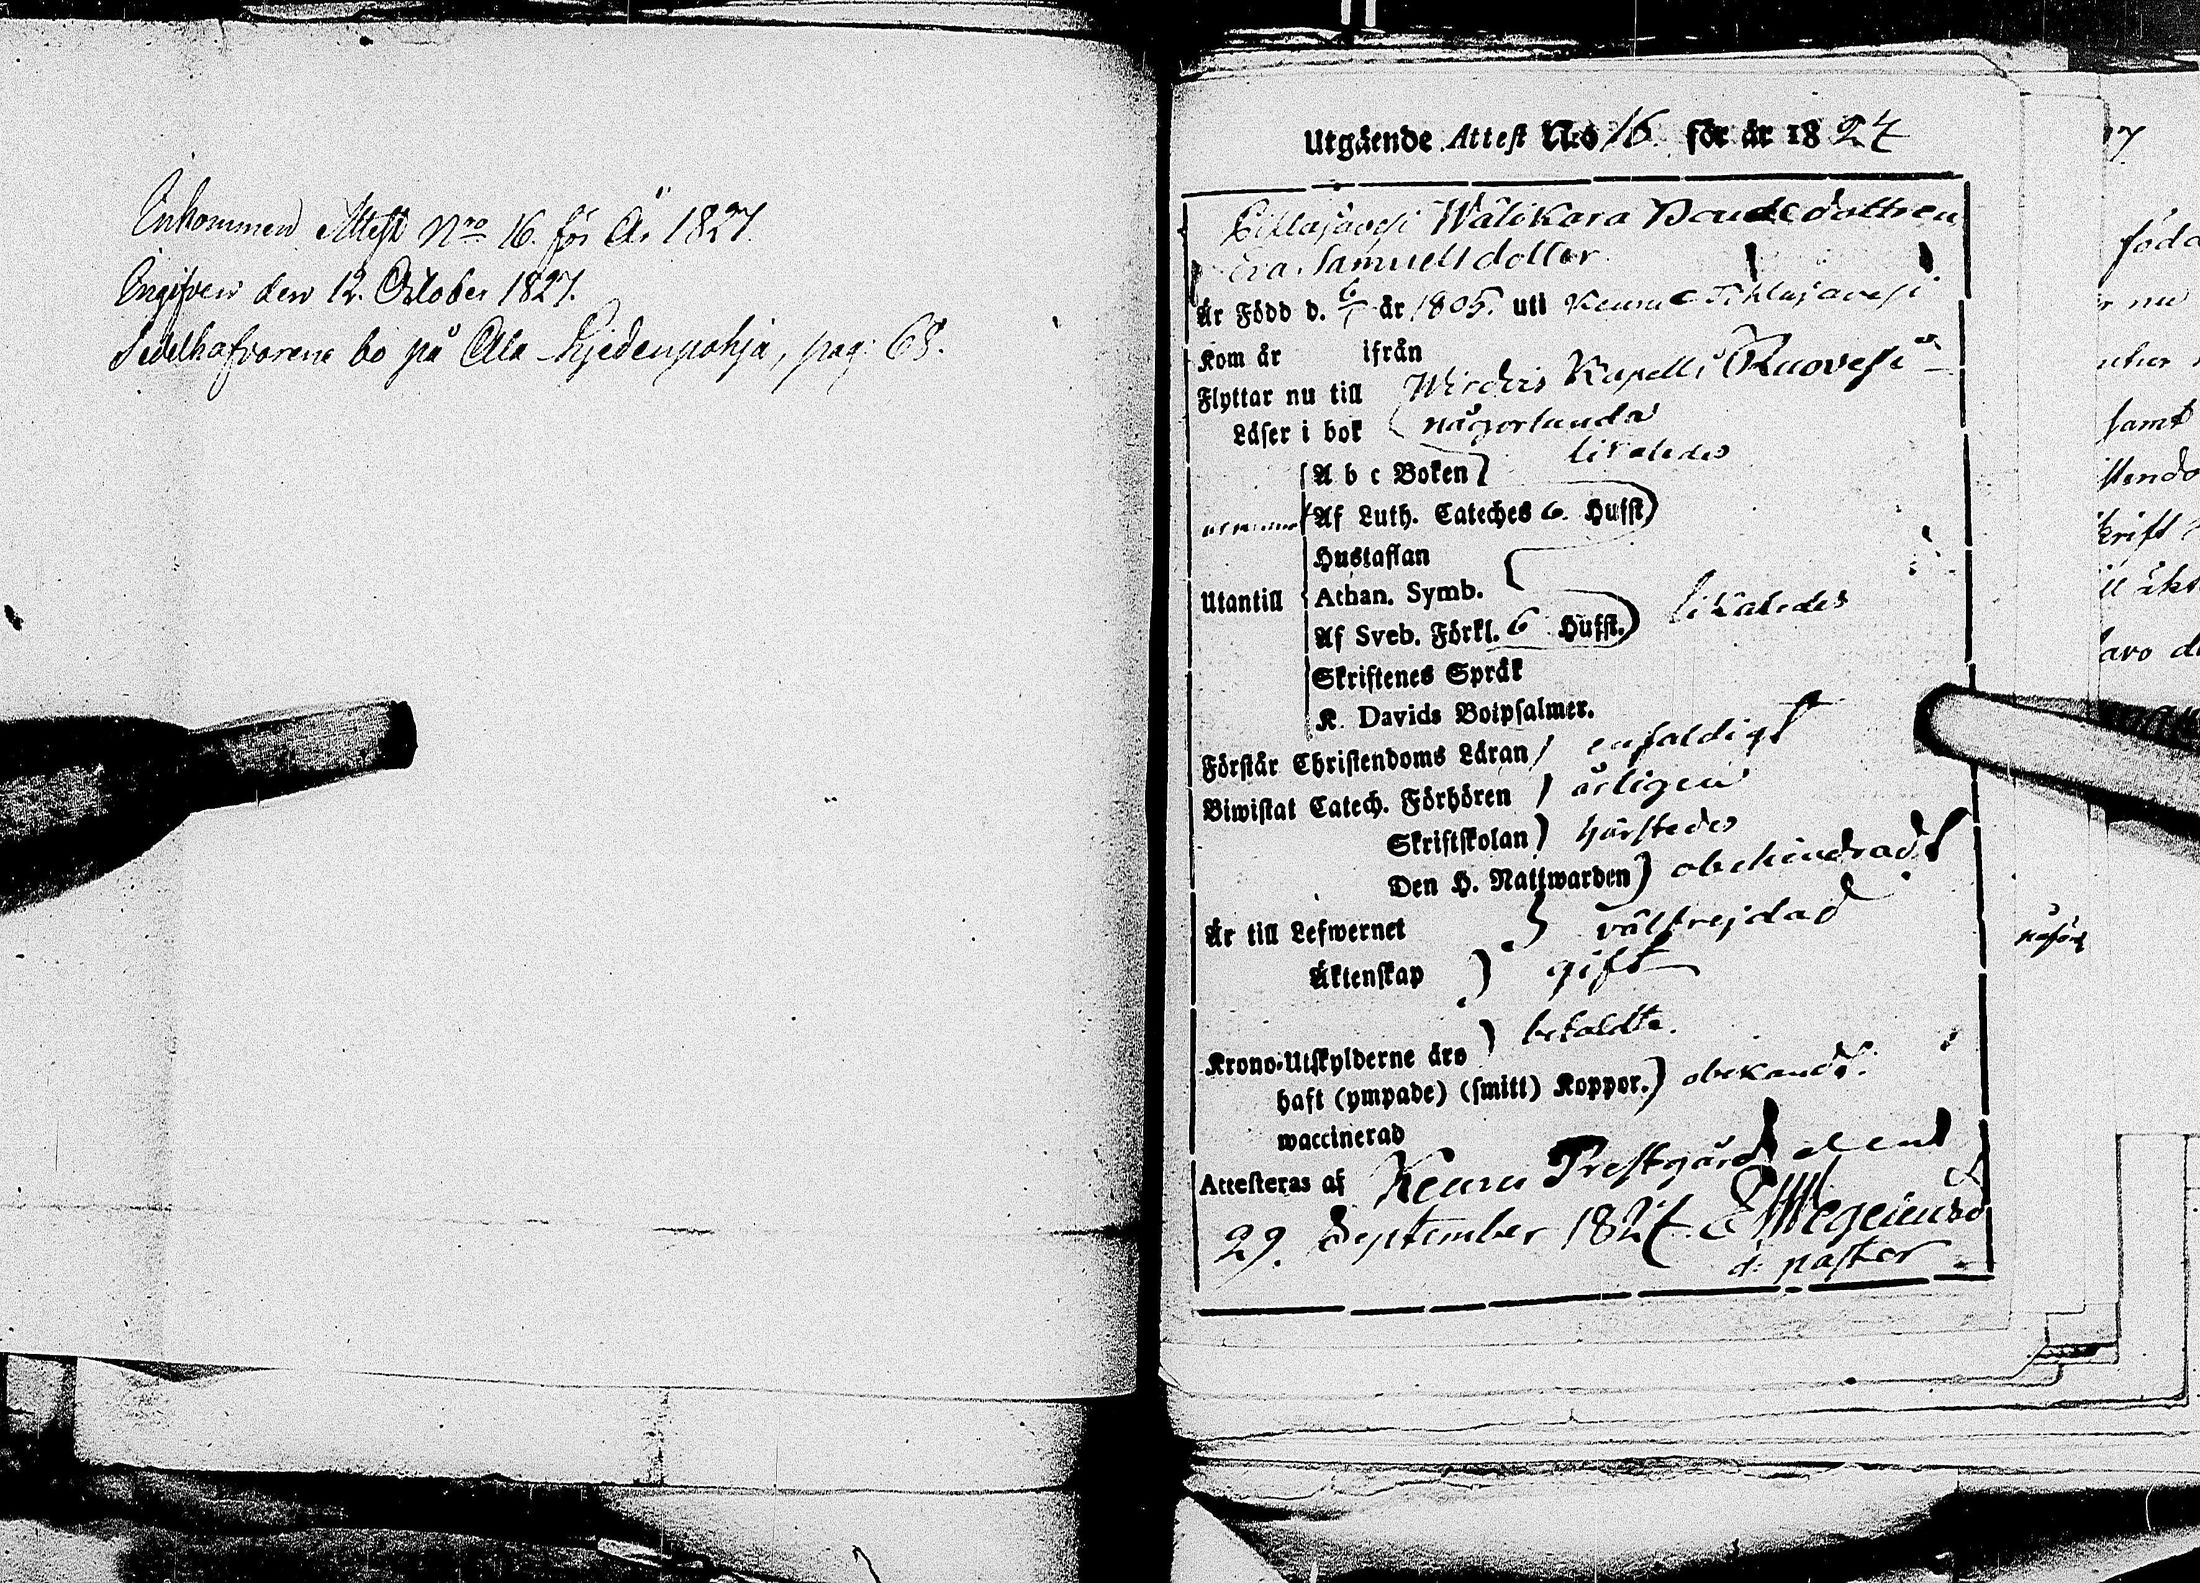 Inkommen Attest Nro 16. för År 1827.
Ingifven den 12. October 1827.
Sedelhafvarene bo på Ala Hjedenpohja, pag: 68.
Utgående Attest N:o 16. för år 1827
Pihlajavesi Wälikara Bondedottren
Eva Samuelsdotter
Är Född d. år 1805. uti Keuru Pihlajavesi
Kom år ifrån
Flyttar nu till Wirdois Kapell i Ruovesi
Läser i bok någorlunda
A b c Boken likaledes
Af Luth. Cateches 6. Hufst
Hustaflan
Utantill Athan. Symb.
Af Sveb. Förkl. 6 Hufst. likaledes
Skriftenes Språk
K. Davids Botpsalmer.
Förstår Christendoms Läran enfaldigt
Biwistat Catech. Förhören årligen
Skriftskolan härstedes
Den H. Nattwarden obehindradt
Är till Lefwernet välfrejdad
Äktenskap gift
Krono-Utskylderne äro betaldte.
haft (ympade) (smitt) Koppor. obekandt.
waccinerad
Attesteras af Keuru Prestgård den
29. September 1827. E Wegelius
d: pastor
föda
r nu
samt
krift